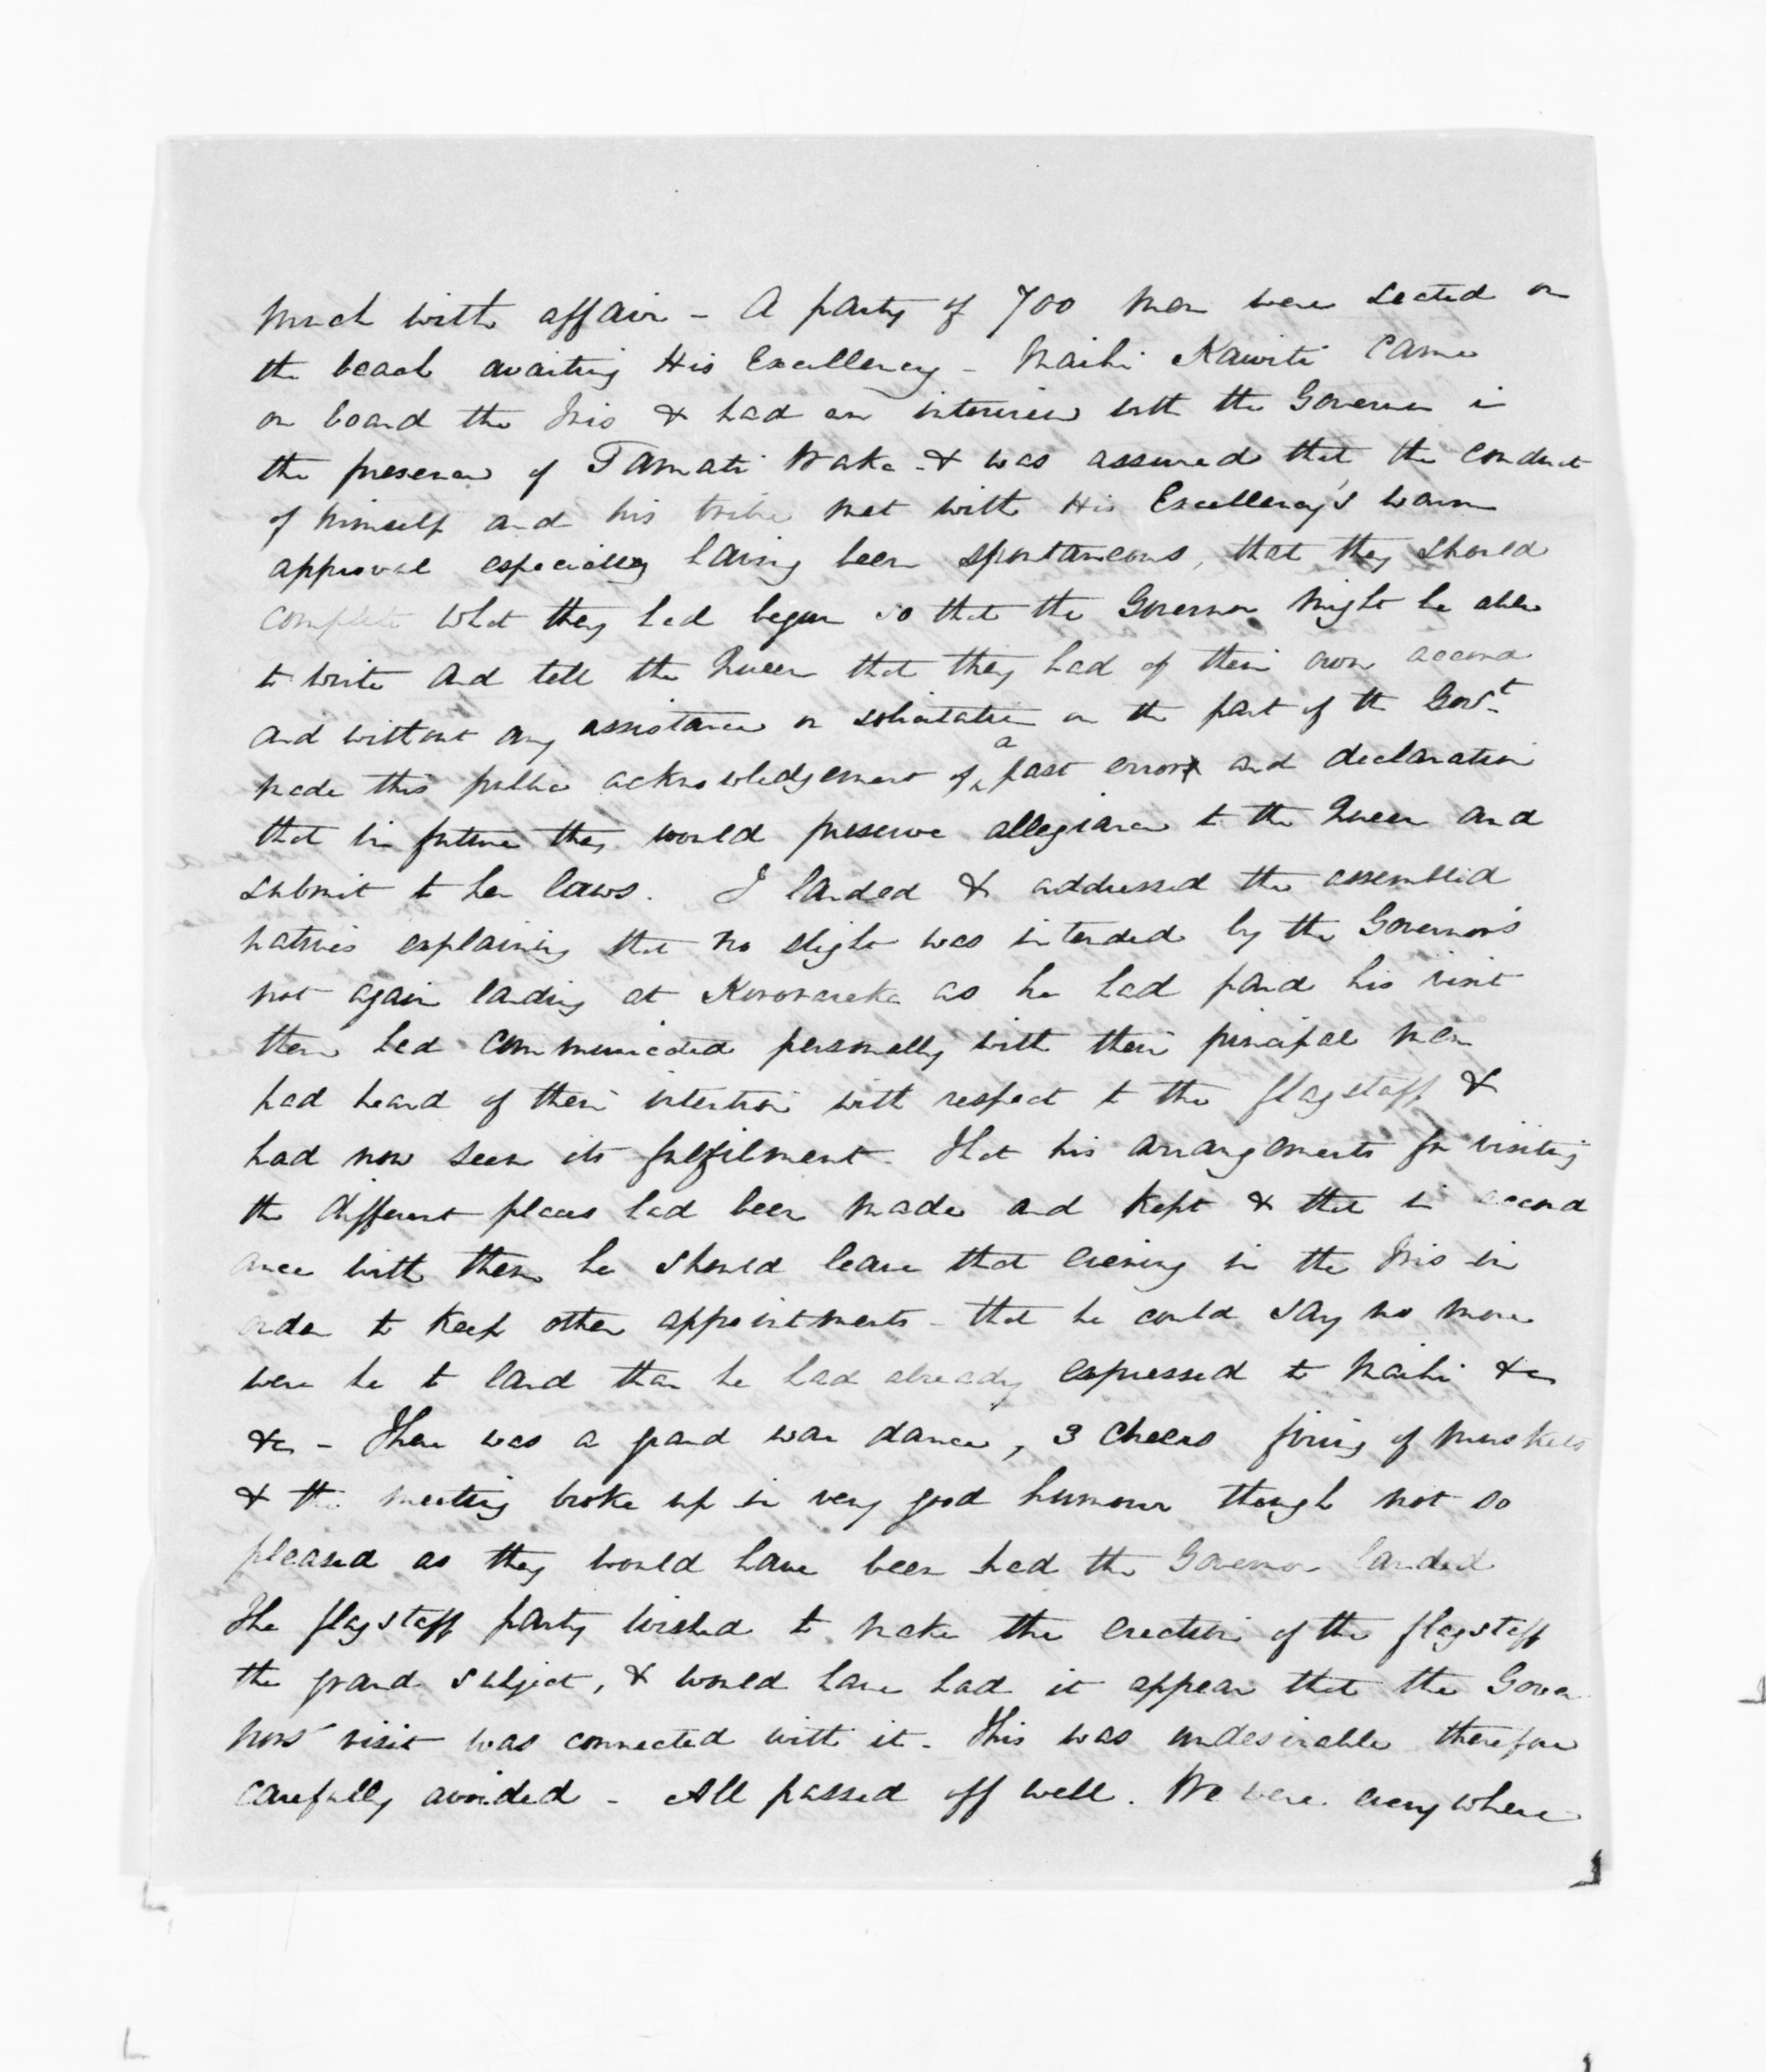 much with affair - A party of 700 men were seated on
the beach awaiting His Excellency - Maihi Kawiti came
on board the Iris & had an interview with the Governor in
the presence of Tamati Waka - & was assured that the conduct
of himself and his tribe met with His Excellency's warm
approval especially having been spontaneous, that they should
complete what they had begun so that the Governor might be able
to write and tell the Queen that they had of their own accord
and without any assistance or solicitation on the part of the Govt.
made this public acknowledgement of a past error and declaration
that in future they would preserve allegiance to the Queen and
submit to her laws. I landed & addressed the assembled
natives explaining that no slight was intended by the Governor's
not again landing at Kororareka as he had paid his visit
there had communicated personally with their principal men
had heard of their intention with respect to the flagstaff &
had now seen its fulfilment. That his arrangements for visiting
the different places had been made and kept & that in accord
ance with them he should leave that evening in the Iris in
order to keep other appointments - that he could say no more
were he to land than he had already expressed to Maihi &c
&c - There was a grand war dance, 3 cheers firing of muskets
& the meeting broke up in very good humour though not so
pleased as they would have been had the Governor landed
The flagstaff party wished to make the erection of the flagstaff
the grand subject, & would have had it appear that the Gover
nors' visit was connected with it - This was undesirable therefore
carefully avoided - All passed off well. We were everywhere